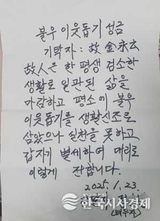 불우 이웃돕기 성금
기탁자: 故 金永玄
故人은 한 평생 검소한
생활로 일관된 삶을
마감하고 평소에 불우
이웃돕기를 생활신조로
삼았으나 실천을 못하고
갑자기 별세하여 대리로
이렇게 전합니다.
2025. 1. 23.
한국시사경제